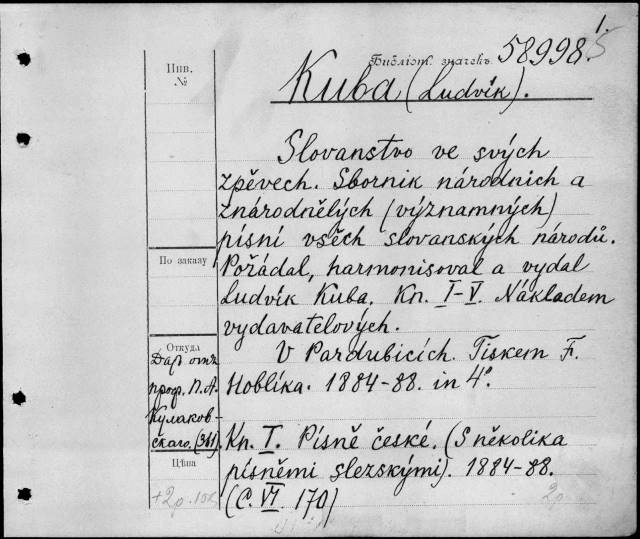 1.
Библіот. значекъ 58998
Инв.
№
Kuba (Ludvík).
Slovanstvo ve svých
zpěvech. Sbornik národních a
znárodnělých (významných)
písní všěch slovanských národů.
По заказу
Pořádal, harmonisoval a vydal
Ludvík Kuba. Kn. I–V. Nákladem
vydavatelových.
Откуда
Даръ отъ
проф. П. А.
Кулаков-
скаго. (361)
V Pardubicích. Tiskem F.
Hoblíka. 1884–88. in 4°.
Цѣна
+2р. 10к
Kn. I. Písně české. (S několika
písněmi slezskými). 1884–88.
(C. VI. 170)
2р.